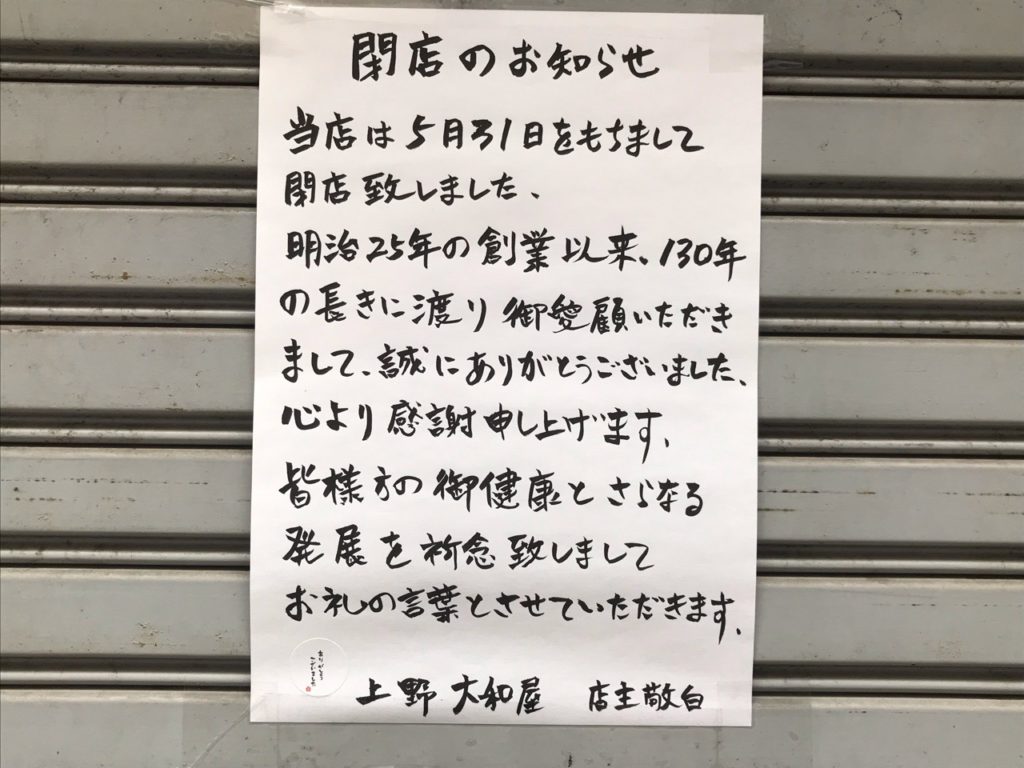 閉店のお知らせ
当店は5月31日をもちまして
閉店致しました、
明治25年の創業以来、130年
の長きに渡り御愛顧いただき
まして、誠にありがとうございました、
心より感謝申し上げます、
皆様方の御健康とさらなる
発展を祈念致しまして
お礼の言葉とさせていただきます、
ありがとう
ございました
上野 大和屋 店主敬白